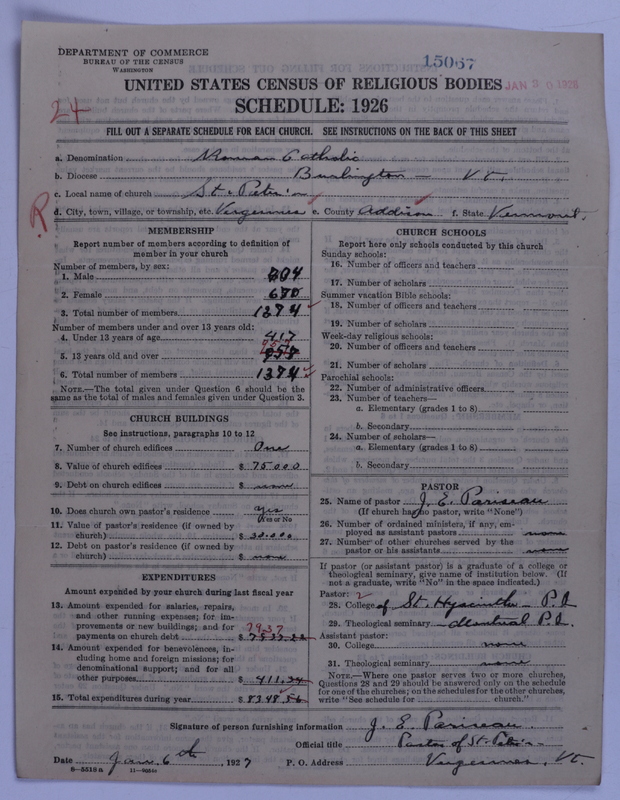 DEPARTMENT OF COMMERCE
BUREAU OF THE CENSUS
WASHINGTON
15067
UNITED STATES CENSUS OF RELIGIOUS BODIES
SCHEDULE: 1926
24
FILL OUT A SEPARATE SCHEDULE FOR EACH CHURCH. SEE INSTRUCTIONS ON THE BACK OF THIS SHEET
a. Denomination Roman Catholic
b. Diocese Burlington — VT.
c. Local name of church St. Peter's
R
d. City, town, village, or township, etc. Vergennes e. County Addison f. State Vermont.
MEMBERSHIP
Report number of members according to definition of
member in your church
Number of members, by sex:
1. Male
2. Female
3. Total number of members 1374
Number of members under and over 13 years old:
4. Under 13 years of age 417
5. 13 years old and over
6. Total number of members 1374
NOTE.—The total given under Question 6 should be the
same as the total of males and females given under Question 3.
CHURCH BUILDINGS
See instructions, paragraphs 10 to 12
7. Number of church edifices One
8. Value of church edifices $ 75000
9. Debt on church edifices $ none
10. Does church own pastor's residence yes
Yes or No
11. Value of pastor's residence (if owned by
church) $ 30.000
12. Debt on pastor's residence (if owned by
church) $ none
EXPENDITURES
Amount expended by your church during last fiscal year
13. Amount expended for salaries, repairs,
and other running expenses; for im-
provements or new buildings; and for
payments on church debt $ 7937
14. Amount expended for benevolences, in-
cluding home and foreign missions; for
denominational support; and for all
other purposes $ 411.34
15. Total expenditures during year $ 8348.56
CHURCH SCHOOLS
Report here only schools conducted by this church
Sunday schools:
16. Number of officers and teachers
17. Number of scholars
Summer vacation Bible schools:
18. Number of officers and teachers
19. Number of scholars
Week-day religious schools:
20. Number of officers and teachers
21. Number of scholars
Parochial schools:
22. Number of administrative officers
23. Number of teachers—
a. Elementary (grades 1 to 8)
b. Secondary
24. Number of scholars—
a. Elementary (grades 1 to 8)
b. Secondary
PASTOR
25. Name of pastor J. E. Pariseau
(If church has no pastor, write "None")
26. Number of ordained ministers, if any, em-
ployed as assistant pastors none
27. Number of other churches served by the
pastor or his assistants none
If pastor (or assistant pastor) is a graduate of a college or
theological seminary, give name of institution below. (If
not a graduate, write "No" in the space indicated.)
Pastor: 2
28. College of St. Hyacinthe P.Q
29. Theological seminary Montreal P.Q.
Assistant pastor:
30. College none
31. Theological seminary none
NOTE.—Where one pastor serves two or more churches,
Questions 28 and 29 should be answered only on the schedule
for one of the churches; on the schedules for the other churches,
write "See schedule for church."
Signature of person furnishing information J. E. Pariseau
Official title Pastor of St. Peter's
Date Jan. 6th 1927 P. O. Address Vergennes, VT.
8—5518a 11—9054b